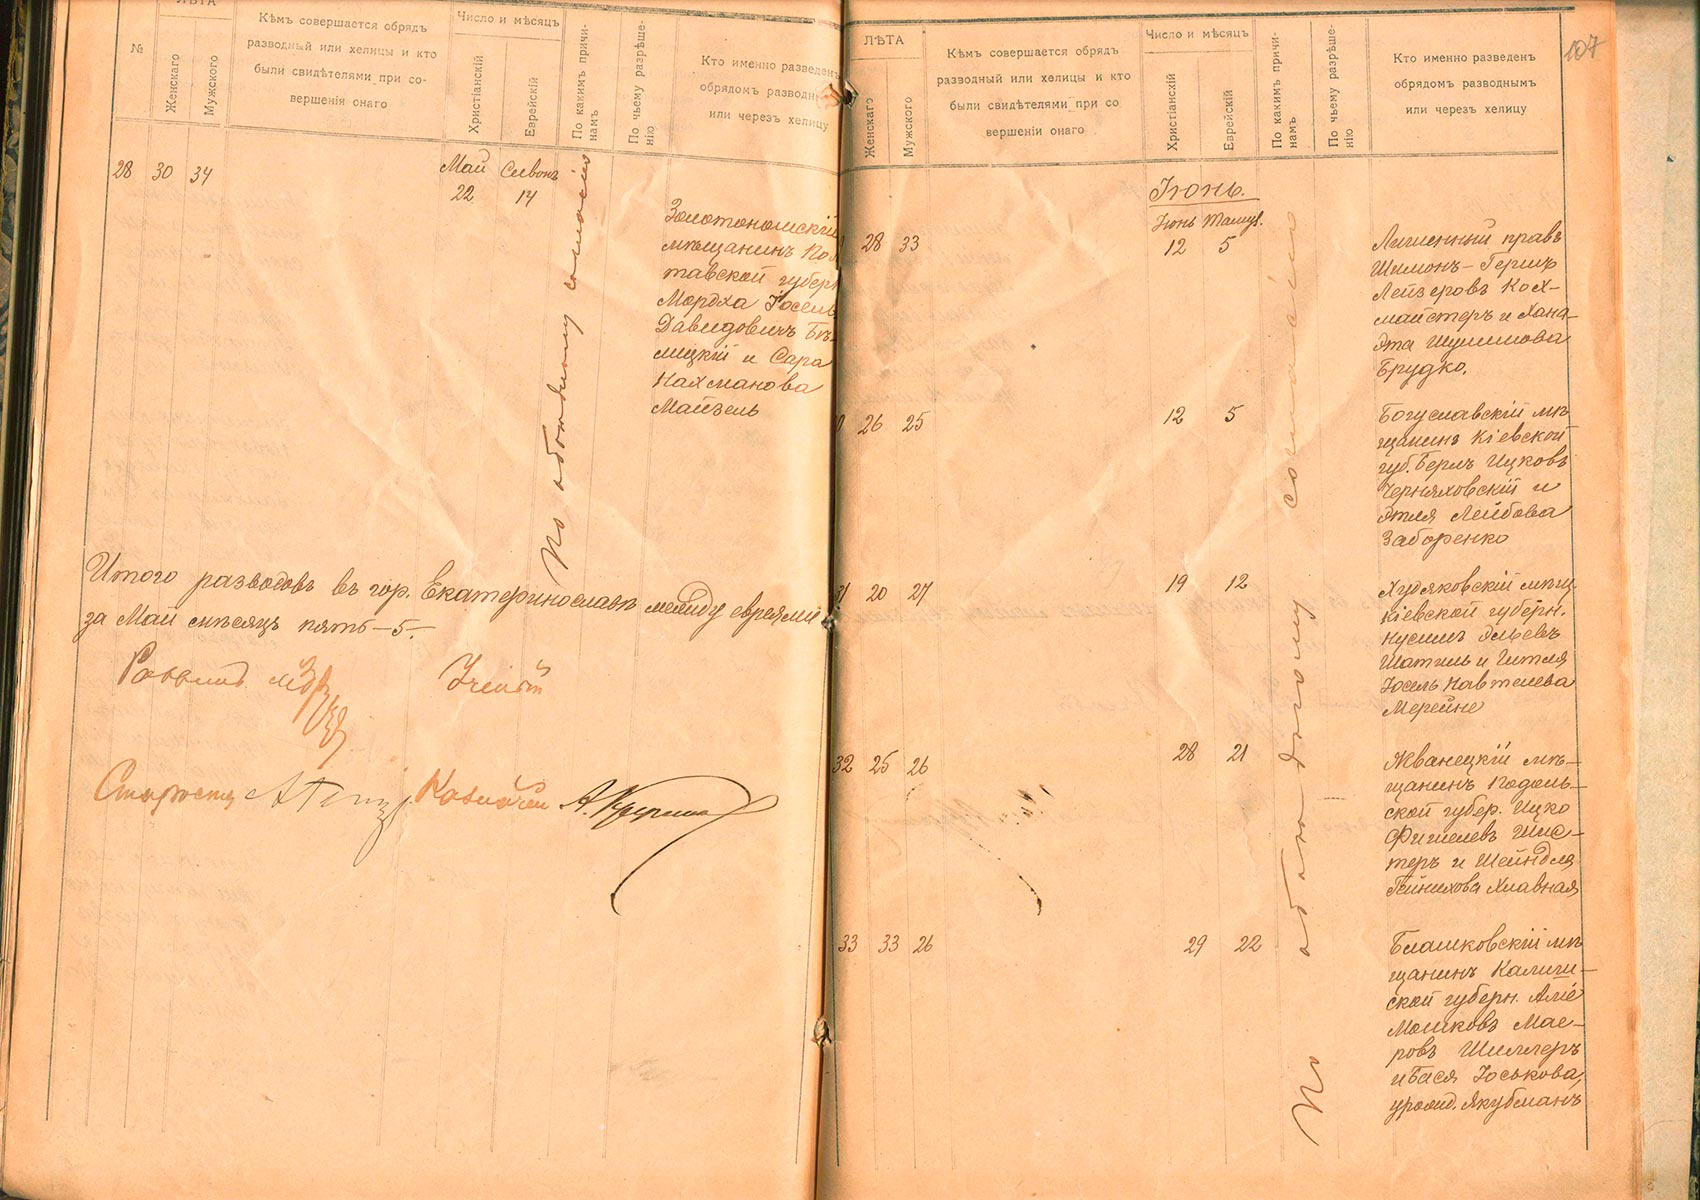 ЛѢТА
№
Женскаго
Мужского
Кѣмъ совершается обрядъ
разводный или хелицы и кто
были свидѣтелями при со-
вершенія онаго
Число и мѣсяцъ
Христіанскій
Еврейскій
По какимъ причи-
намъ
По чьему разрѣше-
нію
Кто именно разведенъ
обрядомъ разводн
или черезъ хелицу
28 30 34
Май Сивонъ
22 14
По обоюдному согласію
Золотоношскій
мѣщанинъ Пол
тавской губерн
Мордха Іосель
Давидовичъ Бѣ-
лицкій и Сара
Нахманова
Майзель
Итого разводовъ въ гор. Екатеринославѣ между евреями
за Май мѣсяцъ пять—5.—
Раввинъ
Ученый
Староста
Казначей
107
ЛѢТА
Женскаго
Мужского
Кѣмъ совершается обрядъ
разводный или хелицы и кто
были свидѣтелями при со
вершеніи онаго
Число и мѣсяцъ
Христіанскій
Еврейскій
По какимъ причи-
намъ
По чьему разрѣше-
нію
Кто именно разведенъ
обрядомъ разводнымъ
или черезъ хелицу
Іюнь.
Іюнь Тамуз.
28 33
12 5
По обоюдному согласію
Лишенный правъ
Шимонъ-Гершъ
Лейзеровъ Кох-
майстеръ и Хана-
Эта Шулимова
Брудко.
26 25
12 5
Богуславскій мѣ
щанинъ Кіевской
губ. Берль Ицковъ
Черняховскій и
Этля Лейбова
Заборенко
20 27
19 12
Худяковскій мѣщ.
Кіевской губерн.
Нусимъ Эльевъ
Шатиль и Гитля
Іосель Навтелева
Мерейне
32 25 26
28 21
Жванецкій мѣ-
щанинъ Подоль-
ской губер. Ицко
Фишелевъ Шис-
теръ и Шейндля
Гейнихова Хлавная
33 33 26
29 22
Блашковскій мѣ
щанинъ Калиш-
ской губерн.
Мошковъ Мае-
ровъ Шиллеръ
и Бася Іоськова,
урожд. Якубманъ